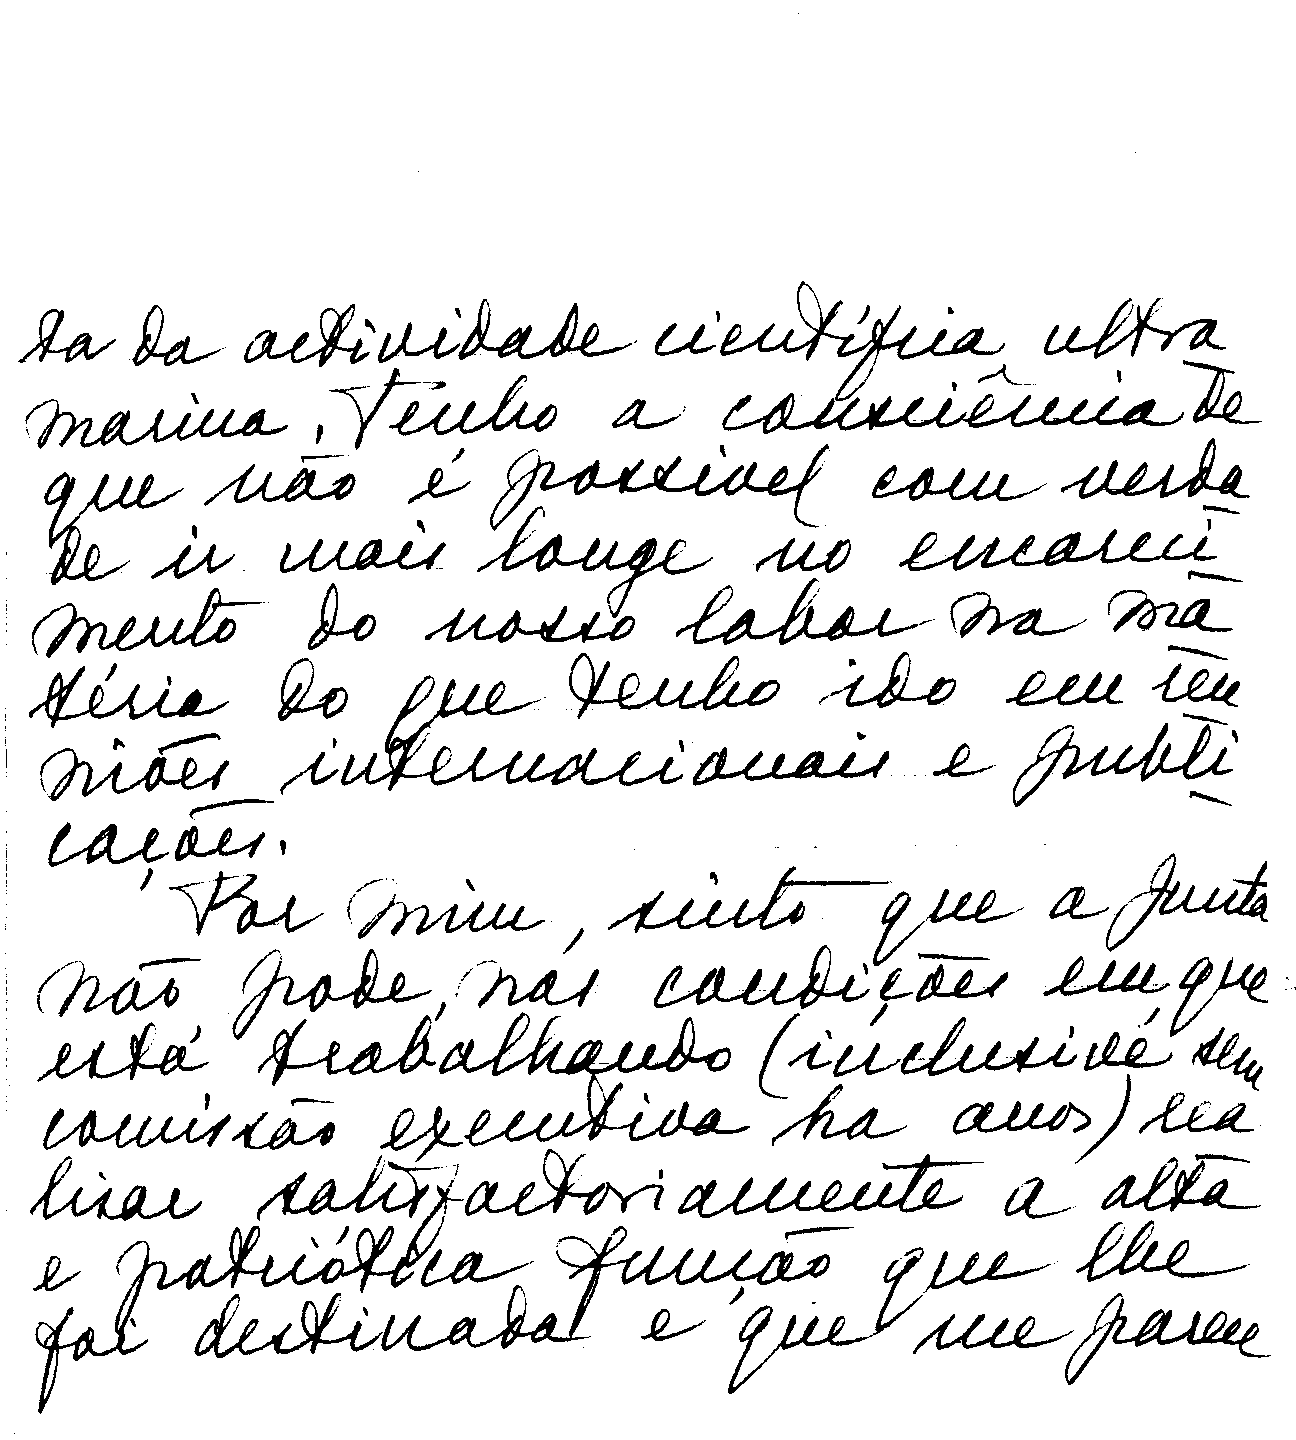 ta da actividade científica ultra
marina. Tenho a consciência de
que não é possivel com verda
de ir mais longe no encareci
mento do nosso labor na ma
téria do que tenho ido em reu
niões internacionais e publi
cações.
Por mim, sinto que a Junta
não pode, nas condições em que
está trabalhando (inclusivé sem
comissão executiva ha anos) rea
lisar satisfactoriamente a alta
e patriótica função que lhe
foi destinada e que me parece